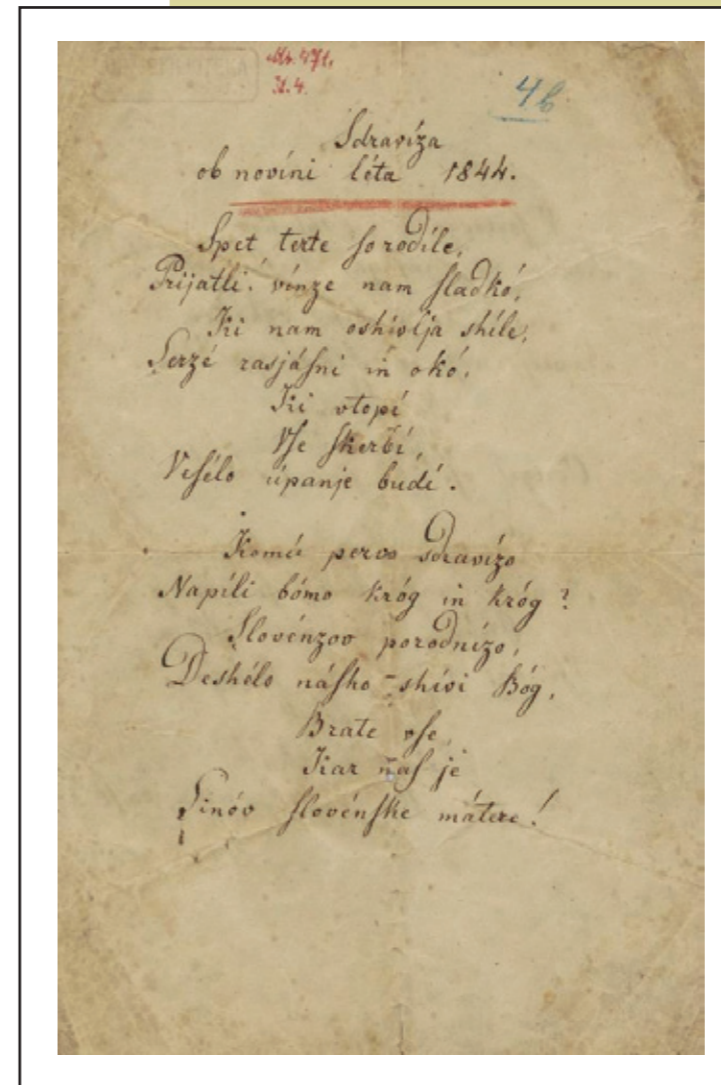 Ms. 471,
St. 4.
4 b
Sdravíza
ob novíni léta 1844.
Spet terte ſo rodíle,
Prijatli! vínze nam ſladkó,
Ki nam oshívlja shíle,
Serzé rasjáſni in okó,
Ki vtopí
Vſe ſkerbí,
Veſélo úpanje budí.
Komú pervo sdravízo
Napíli bómo króg in króg?
Slovénzov porodnízo,
Deshélo náſho shívi Bóg,
Brate vſe,
Kar naſ je
Sinóv ſlovénſke mátere!